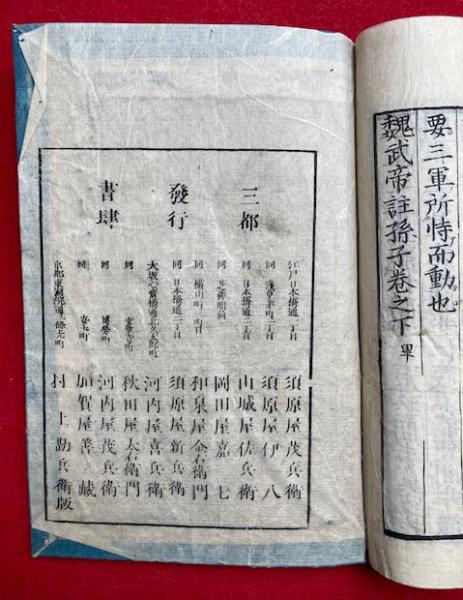 要三軍所恃而動也
魏武帝註孫子卷之下畢
三都
發行
書肆
江戸日本橋通一丁目 須原屋茂兵衛
同 淺草茅町二丁目 須原屋伊八
同 日本橋通二丁目 山城屋佐兵衛
同 芝神明前 岡田屋嘉七
同 横山町三丁目 和泉屋金右衛門
同 日本橋通二丁目 須原屋新兵衛
大坂心齋橋通北久太郎町 河内屋喜兵衛
同 秋田屋太右衛門
同 博勞町 河内屋茂兵衛
同 安土町 加賀屋善藏
京都東洞院通三條上町 村上勘兵衛版